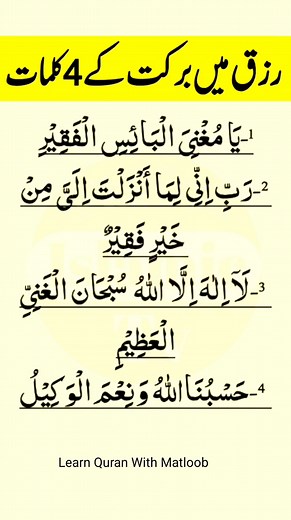 رزق میں برکت کے 4 کلمات
1-يَا مُغْنِيَ الْبَائِسِ الْفَقِيْرِ
2-رَبِّ اِنِّي لِمَا أَنْزَلْتَ اِلَيَّ مِنْ
خَيْرٍ فَقِيْرٌ
3-لَآ اِلٰهَ اِلَّا اللهُ سُبْحَانَ الْغَنِيِّ
الْعَظِيْمِ
4-حَسْبُنَا اللهُ وَنِعْمَ الْوَكِيْلُ
Learn Quran With Matloob